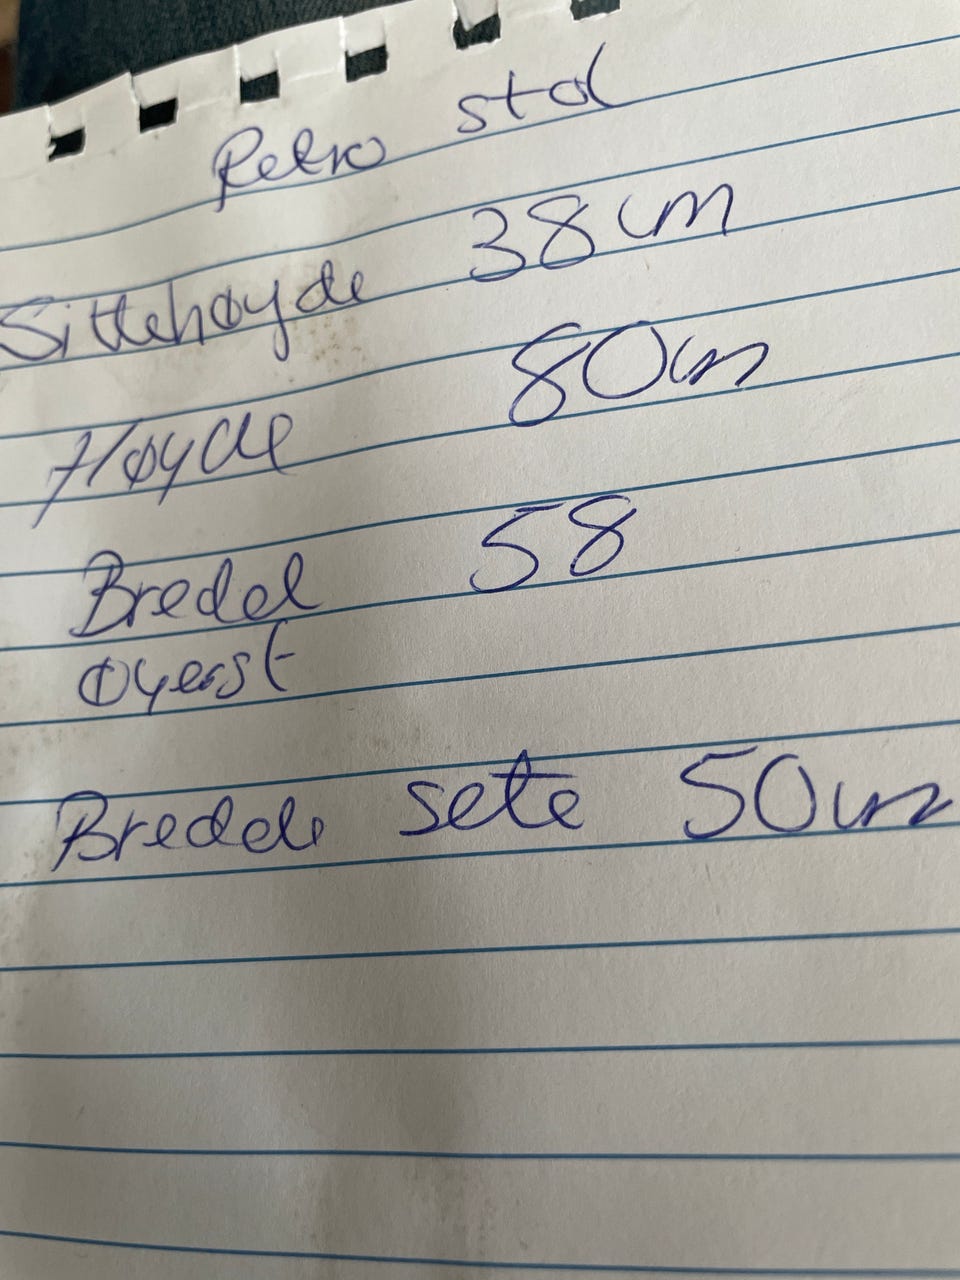 Retro stol
Sittehøyde 38cm
Høyde 80cm
Bredde 58
Øverst
Bredde sete 50cm